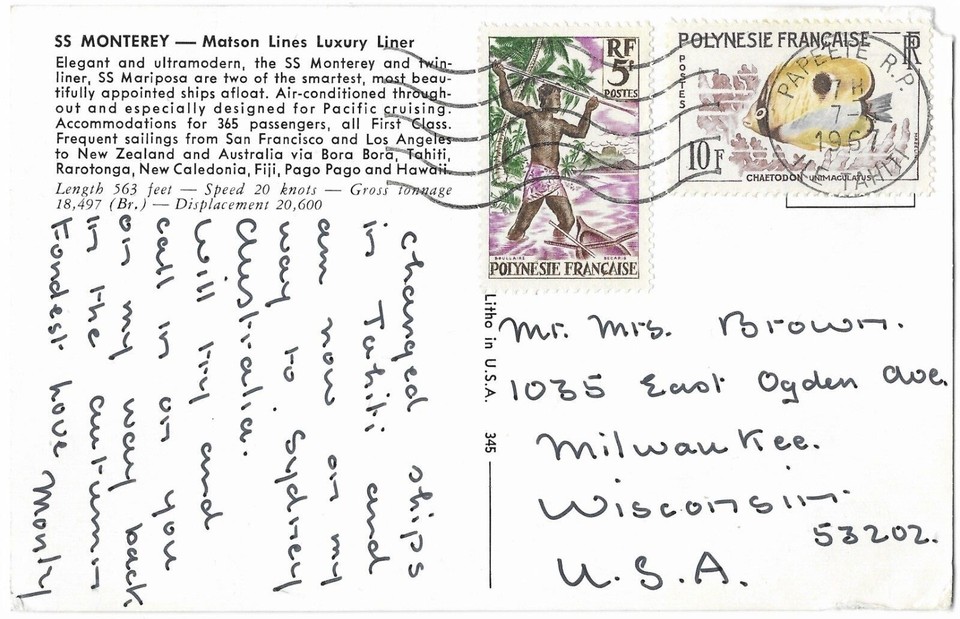 SS MONTEREY — Matson Lines Luxury Liner
Elegant and ultramodern, the SS Monterey and twin-
liner, SS Mariposa are two of the smartest, most beau-
tifully appointed ships afloat. Air-conditioned through-
out and especially designed for Pacific cruising.
Accommodations for 365 passengers, all First Class.
Frequent sailings from San Francisco and Los Angeles
to New Zealand and Australia via Bora Bora, Tahiti,
Rarotonga, New Caledonia, Fiji, Pago Pago and Hawaii.
Length 563 feet — Speed 20 knots — Gross tonnage
18,497 (Br.) — Displacement 20,600
Changed ships
in Tahiti and
am now on my
way to Sydney
Australia.
Will try and
call in on you
on my way back
in the autumn
Fondest love Monty
RF
5f
POSTES
POLYNÉSIE FRANÇAISE
POLYNÉSIE FRANÇAISE
RF
POSTES
10F
CHAETODON UNIMACULATUS
PAPEETE R.P.
7H
7-
1967
ILE TAHITI
Litho in U.S.A. 345
Mr. Mrs. Brown.
1035 East Ogden Ave.
Milwaukee.
Wisconsin
53202.
U.S.A.